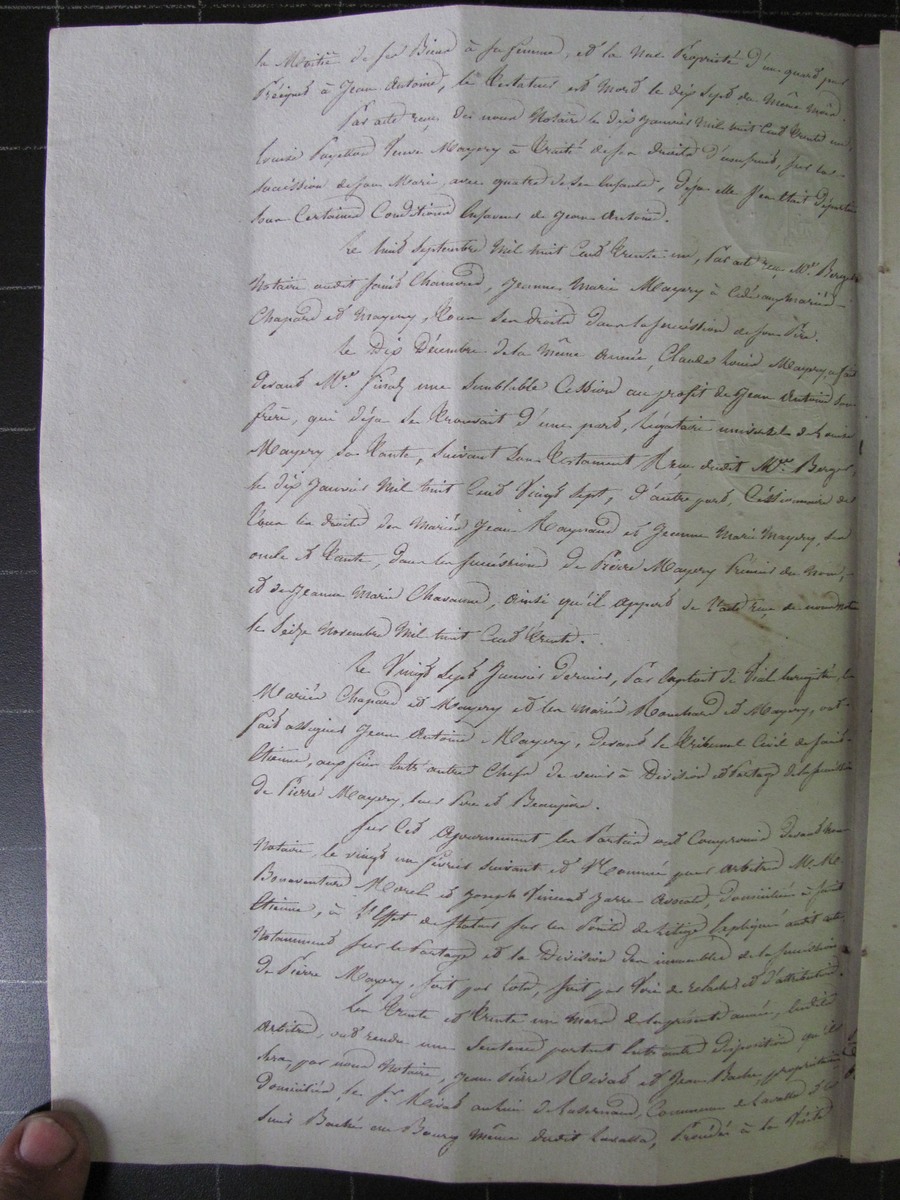 la Moitié de ses Biens à sa femme, et la Nue Propriété d'un quart par
Préciput à Jean Antoine, le Testateur est Mort le dix sept du Même Mois.
Par acte reçu Dei nous Notaire le dix Janvier Mil huit Cent trente un,
Louise Payellon Veuve Mayery à Traité de son droits d'usufruit, sur la
succession de son Mari, avec quatre de ses Enfants, Déja elle s'en était Départie
sous Certaines Conditions En faveur de Jean Antoine.
Le huit Septembre Mil huit Cent trente un, Par acte reçu Me Berger
Notaire audit Saint Chamond, Jeanne Marie Mayery à Cédé aux mariés
Chapard et Mayery, Tous ses droits dans la succession de son Père.
Le Dix Décembre de la Même Année, Claude Louis Mayery a fait
devant Me Finaz une semblable Cession au profit de Jean Antoine son
frère, qui déja se trouvait d'une part, Légataire universel de Louise
Mayery sa Tante, suivant son Testament Reçu dudit Me Berger,
le dix Janvier Mil huit Cent Vingt sept, d'autre part, Cessionnaire de
Tous les droits des Mariés Jean Raynaud et Jeanne Marie Mayery, ses
oncle et Tante, dans les successions de Pierre Mayery Premier du Nom,
et de Jeanne Marie Chavanne, ainsi qu'il appert de l'acte reçu de nous Notaire
le Seize Novembre Mil huit Cent Trente.
Le Vingt sept Janvier dernier, Par Exploit de Vial Enregistré, les
Mariés Chapard et Mayery et les Mariés Rouchard et Mayery, ont
fait assigner Jean Antoine Mayery, devant le Tribunal Civil de Saint
Etienne, aux fins Entr'autres Chefs de venir à Division et Partage de la succession
de Pierre Mayery, leur Père et Beaupère.
Sur Cet Ajournement les Parties ont Compromis devant nous
Notaire, le vingt un février suivant et Nommé pour arbitres MM.
Bonaventure Morel et Joseph Vincent Jarre Avocats, domiciliés à Saint
Etienne, à l'Effet de statuer sur les Points de Litige Expliqués audit acte
Notamment sur le Partage et la Division des immeubles de la succession
de Pierre Mayery, soit par Lots, soit par Voie de relache et d'attribution.
Les Trente et Trente un Mars de la présente année, lesdits
Arbitres, ont rendu une Sentence portant Entr'autres disposition qu'il
sera, par nous Notaire, Jean Pierre Rivat et Jean Baché propriétaires
domiciliés le Sr. Rivat au lieu de Commune de Lavalla et le
sieur Baché au Bourg même dudit Lavalla, Procédé à la Visite